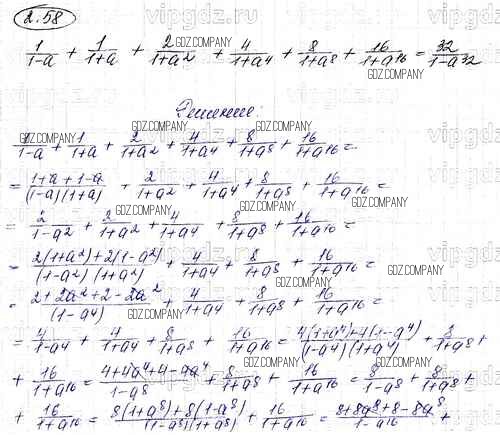 2.58
1/(1-a) + 1/(1+a) + 2/(1+a²) + 4/(1+a⁴) + 8/(1+a⁸) + 16/(1+a¹⁶) = 32/(1-a³²)
Решение:
1/(1-a) + 1/(1+a) + 2/(1+a²) + 4/(1+a⁴) + 8/(1+a⁸) + 16/(1+a¹⁶) =
= (1+a+1-a)/((1-a)(1+a)) + 2/(1+a²) + 4/(1+a⁴) + 8/(1+a⁸) + 16/(1+a¹⁶) =
= 2/(1-a²) + 2/(1+a²) + 4/(1+a⁴) + 8/(1+a⁸) + 16/(1+a¹⁶) =
= (2(1+a²)+2(1-a²))/((1-a²)(1+a²)) + 4/(1+a⁴) + 8/(1+a⁸) + 16/(1+a¹⁶) =
= (2+2a²+2-2a²)/(1-a⁴) + 4/(1+a⁴) + 8/(1+a⁸) + 16/(1+a¹⁶) =
= 4/(1-a⁴) + 4/(1+a⁴) + 8/(1+a⁸) + 16/(1+a¹⁶) = (4(1+a⁴)+4(1-a⁴))/((1-a⁴)(1+a⁴)) + 8/(1+a⁸) +
+ 16/(1+a¹⁶) = (4+4a⁴+4-4a⁴)/(1-a⁸) + 8/(1+a⁸) + 16/(1+a¹⁶) = 8/(1-a⁸) + 8/(1+a⁸) +
+ 16/(1+a¹⁶) = (8(1+a⁸)+8(1-a⁸))/((1-a⁸)(1+a⁸)) + 16/(1+a¹⁶) = (8+8a⁸+8-8a⁸)/(1-a¹⁶) +